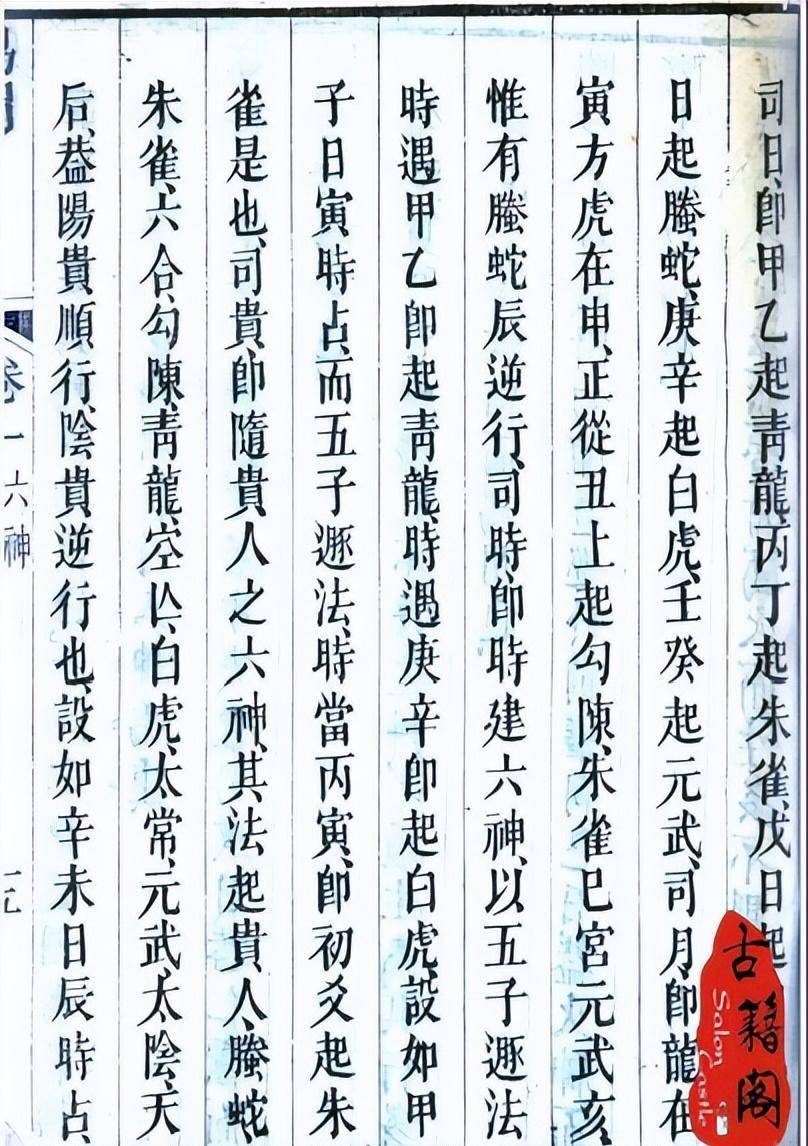 司日、卽甲乙起靑龍、丙丁起朱雀、戊日起
日起螣蛇、庚辛起白虎、壬癸起元武、司月、卽龍在
寅方虎在申、正從丑上起勾陳、朱雀巳宮元武亥、
惟有螣蛇辰逆行、司時、卽時建六神、以五子遯法
時遇甲乙卽起靑龍、時遇庚辛卽起白虎、設如甲
子日寅時占、而五子遯法、時當丙寅、卽初爻起朱
雀是也、司貴、卽隨貴人之六神、其法起貴人、螣蛇、
朱雀、六合、勾陳、靑龍、空亾、白虎、太常、元武、太陰、天
后、葢陽貴順行、陰貴逆行也、設如辛未日辰時占、
卷一 六神
古籍阁
Salon Castle